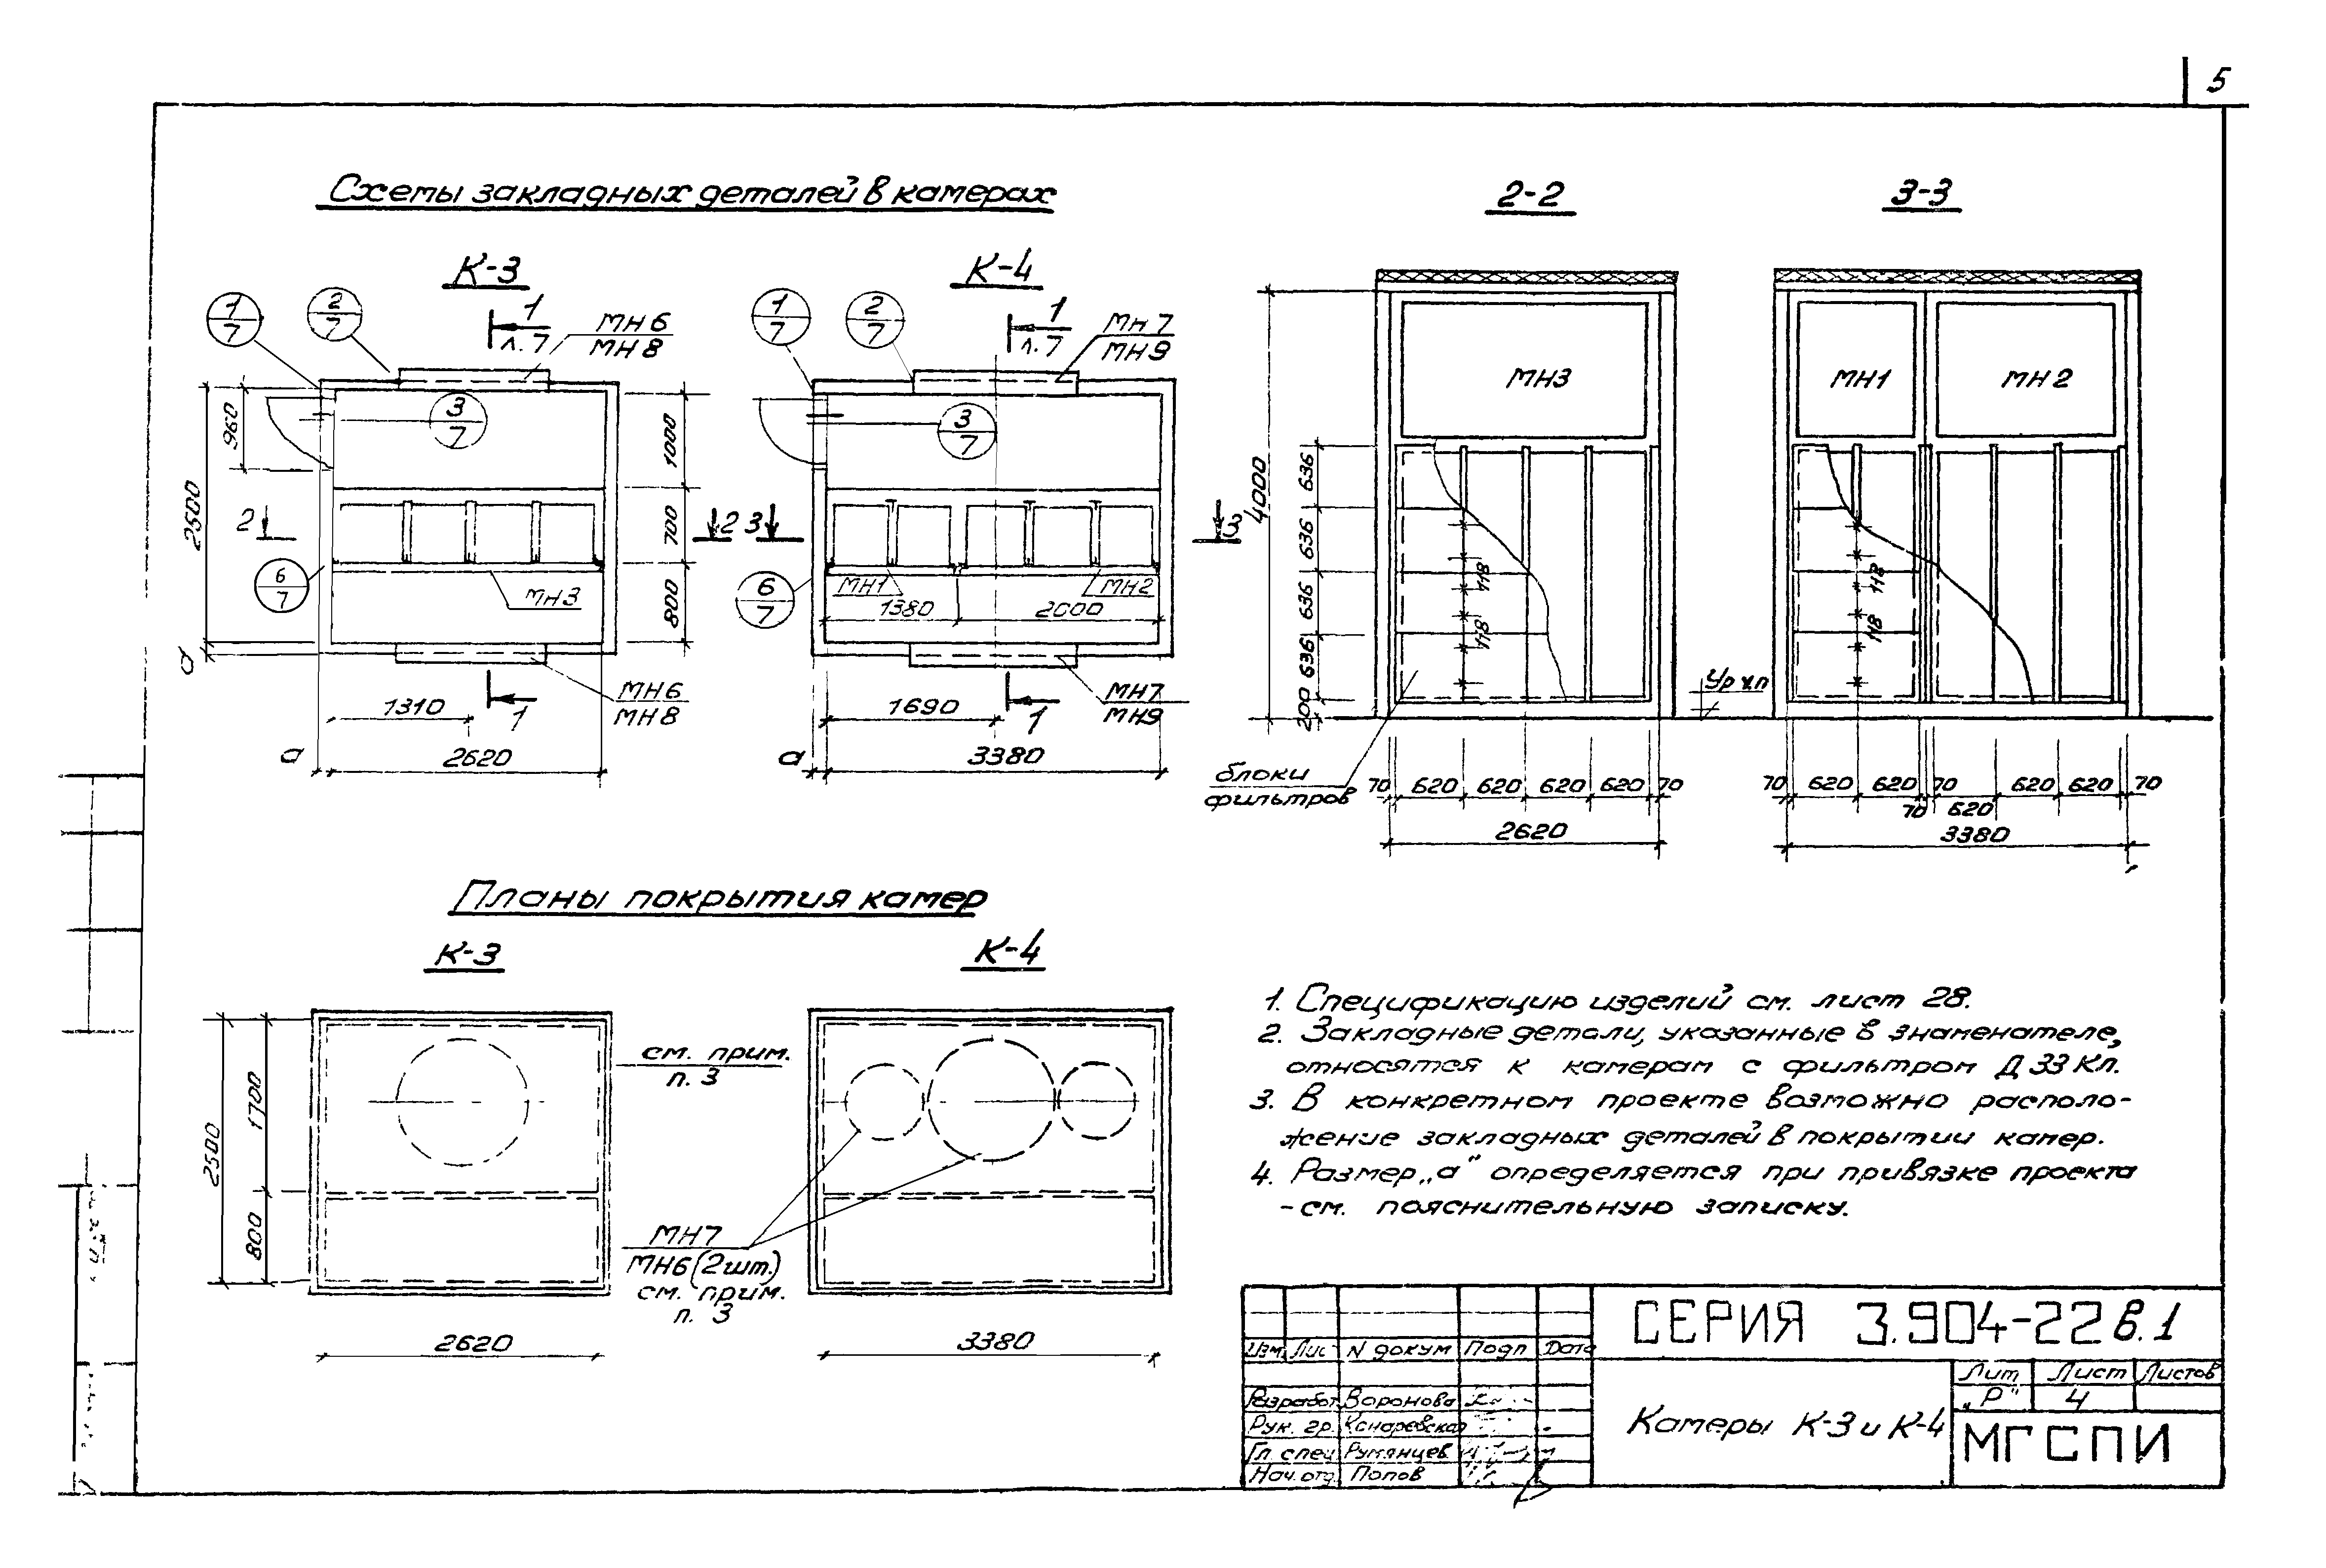 5
Схемы закладных деталей в камерах
К-3
К-4
2-2
3-3
1
7
2
7
1
л. 7
МН6
МН8
3
7
960
2500
1000
700
800
2
2
6
7
МН3
а
1
МН6
МН8
1310
а
2620
1
7
2
7
1
л. 7
МН7
МН9
3
7
3
3
6
7
МН1
МН2
1380
2000
1
МН7
МН9
1690
а
3380
4000
МН3
636
636
636
636
200
118
118
блоки
фильтров
70 620 620 620 620 70
2620
МН1
МН2
118
118
Ур ч.п
70 620 620 70 620 620 70
70 620
3380
Планы покрытия камер
К-3
К-4
2500
1700
800
2620
см. прим.
п. 3
МН7
МН6 (2шт.)
см. прим.
п. 3
3380
1. Спецификацию изделий см. лист 28.
2. Закладные детали, указанные в знаменателе,
относятся к камерам с фильтром Д 33 Кл.
3. В конкретном проекте возможно располо-
жение закладных деталей в покрытии камер.
4. Размер „а" определяется при привязке проекта
- см. пояснительную записку.
СЕРИЯ 3.904-22 в.1
Изм. Лис N докум Подп Дата
Разработ. Воронова
Рук. гр. Конаревская
Гл. спец. Румянцев
Нач. отд. Попов
Камеры К-3 и К-4
Лит Лист Листов
„Р" 4
МГСПИ